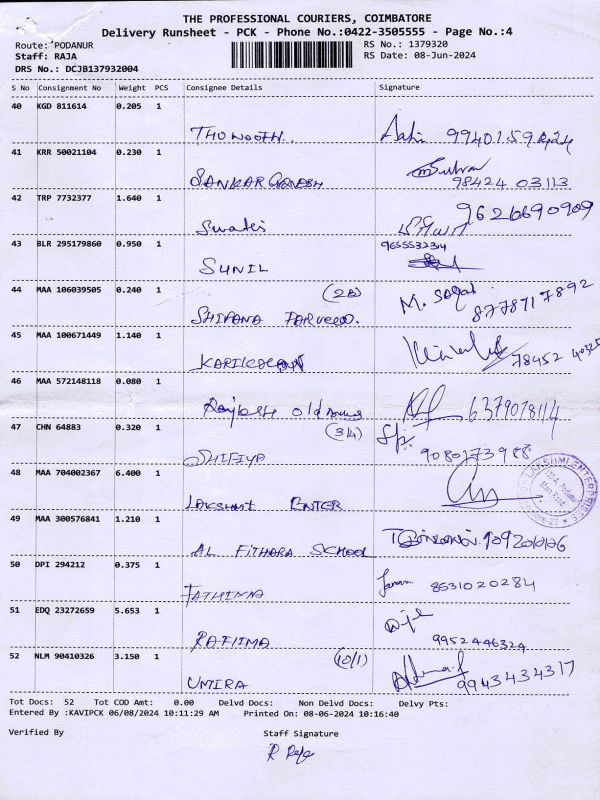 THE PROFESSIONAL COURIERS, COIMBATORE
Delivery Runsheet - PCK - Phone No.:0422-3505555 - Page No.:4
Route: PODANUR RS No.: 1379320
Staff: RAJA RS Date: 08-Jun-2024
DRS No.: DCJB137932004
S No Consignment No Weight PCS Consignee Details Signature
40 KGD 811614 0.205 1
41 KRR 50021104 0.230 1
SANKAR GANESH 98424 03113
42 TRP 7732377 1.640 1
Swathi 9626690909
43 BLR 295179860 0.950 1 9655532314
SUNIL
44 MAA 106039505 0.240 1
SHIFANA PARVEEN. M. 8778717892
45 MAA 100671449 1.140 1
78452
46 MAA 572148118 0.080 1
old 6379078114
47 CHN 64883 0.320 1 (34)
SHIFIYA 9080173988
48 MAA 704002367 6.400 1
LAKSHMI ENTER
LAKSHMI ENTERPRISES
49 MAA 300576841 1.210 1
AL FITHARA SCHOOL
50 DPI 294212 0.375 1
FATHIMA 8531020284
51 EDQ 23272659 5.653 1
9952446324
52 NLM 90410326 3.150 1 (10/1)
UMIRA 9943434317
Tot Docs: 52 Tot COD Amt: 0.00 Delvd Docs: Non Delvd Docs: Delvy Pts:
Entered By :KAVIPCK 06/08/2024 10:11:29 AM Printed On: 08-06-2024 10:16:40
Verified By Staff Signature
R Raja